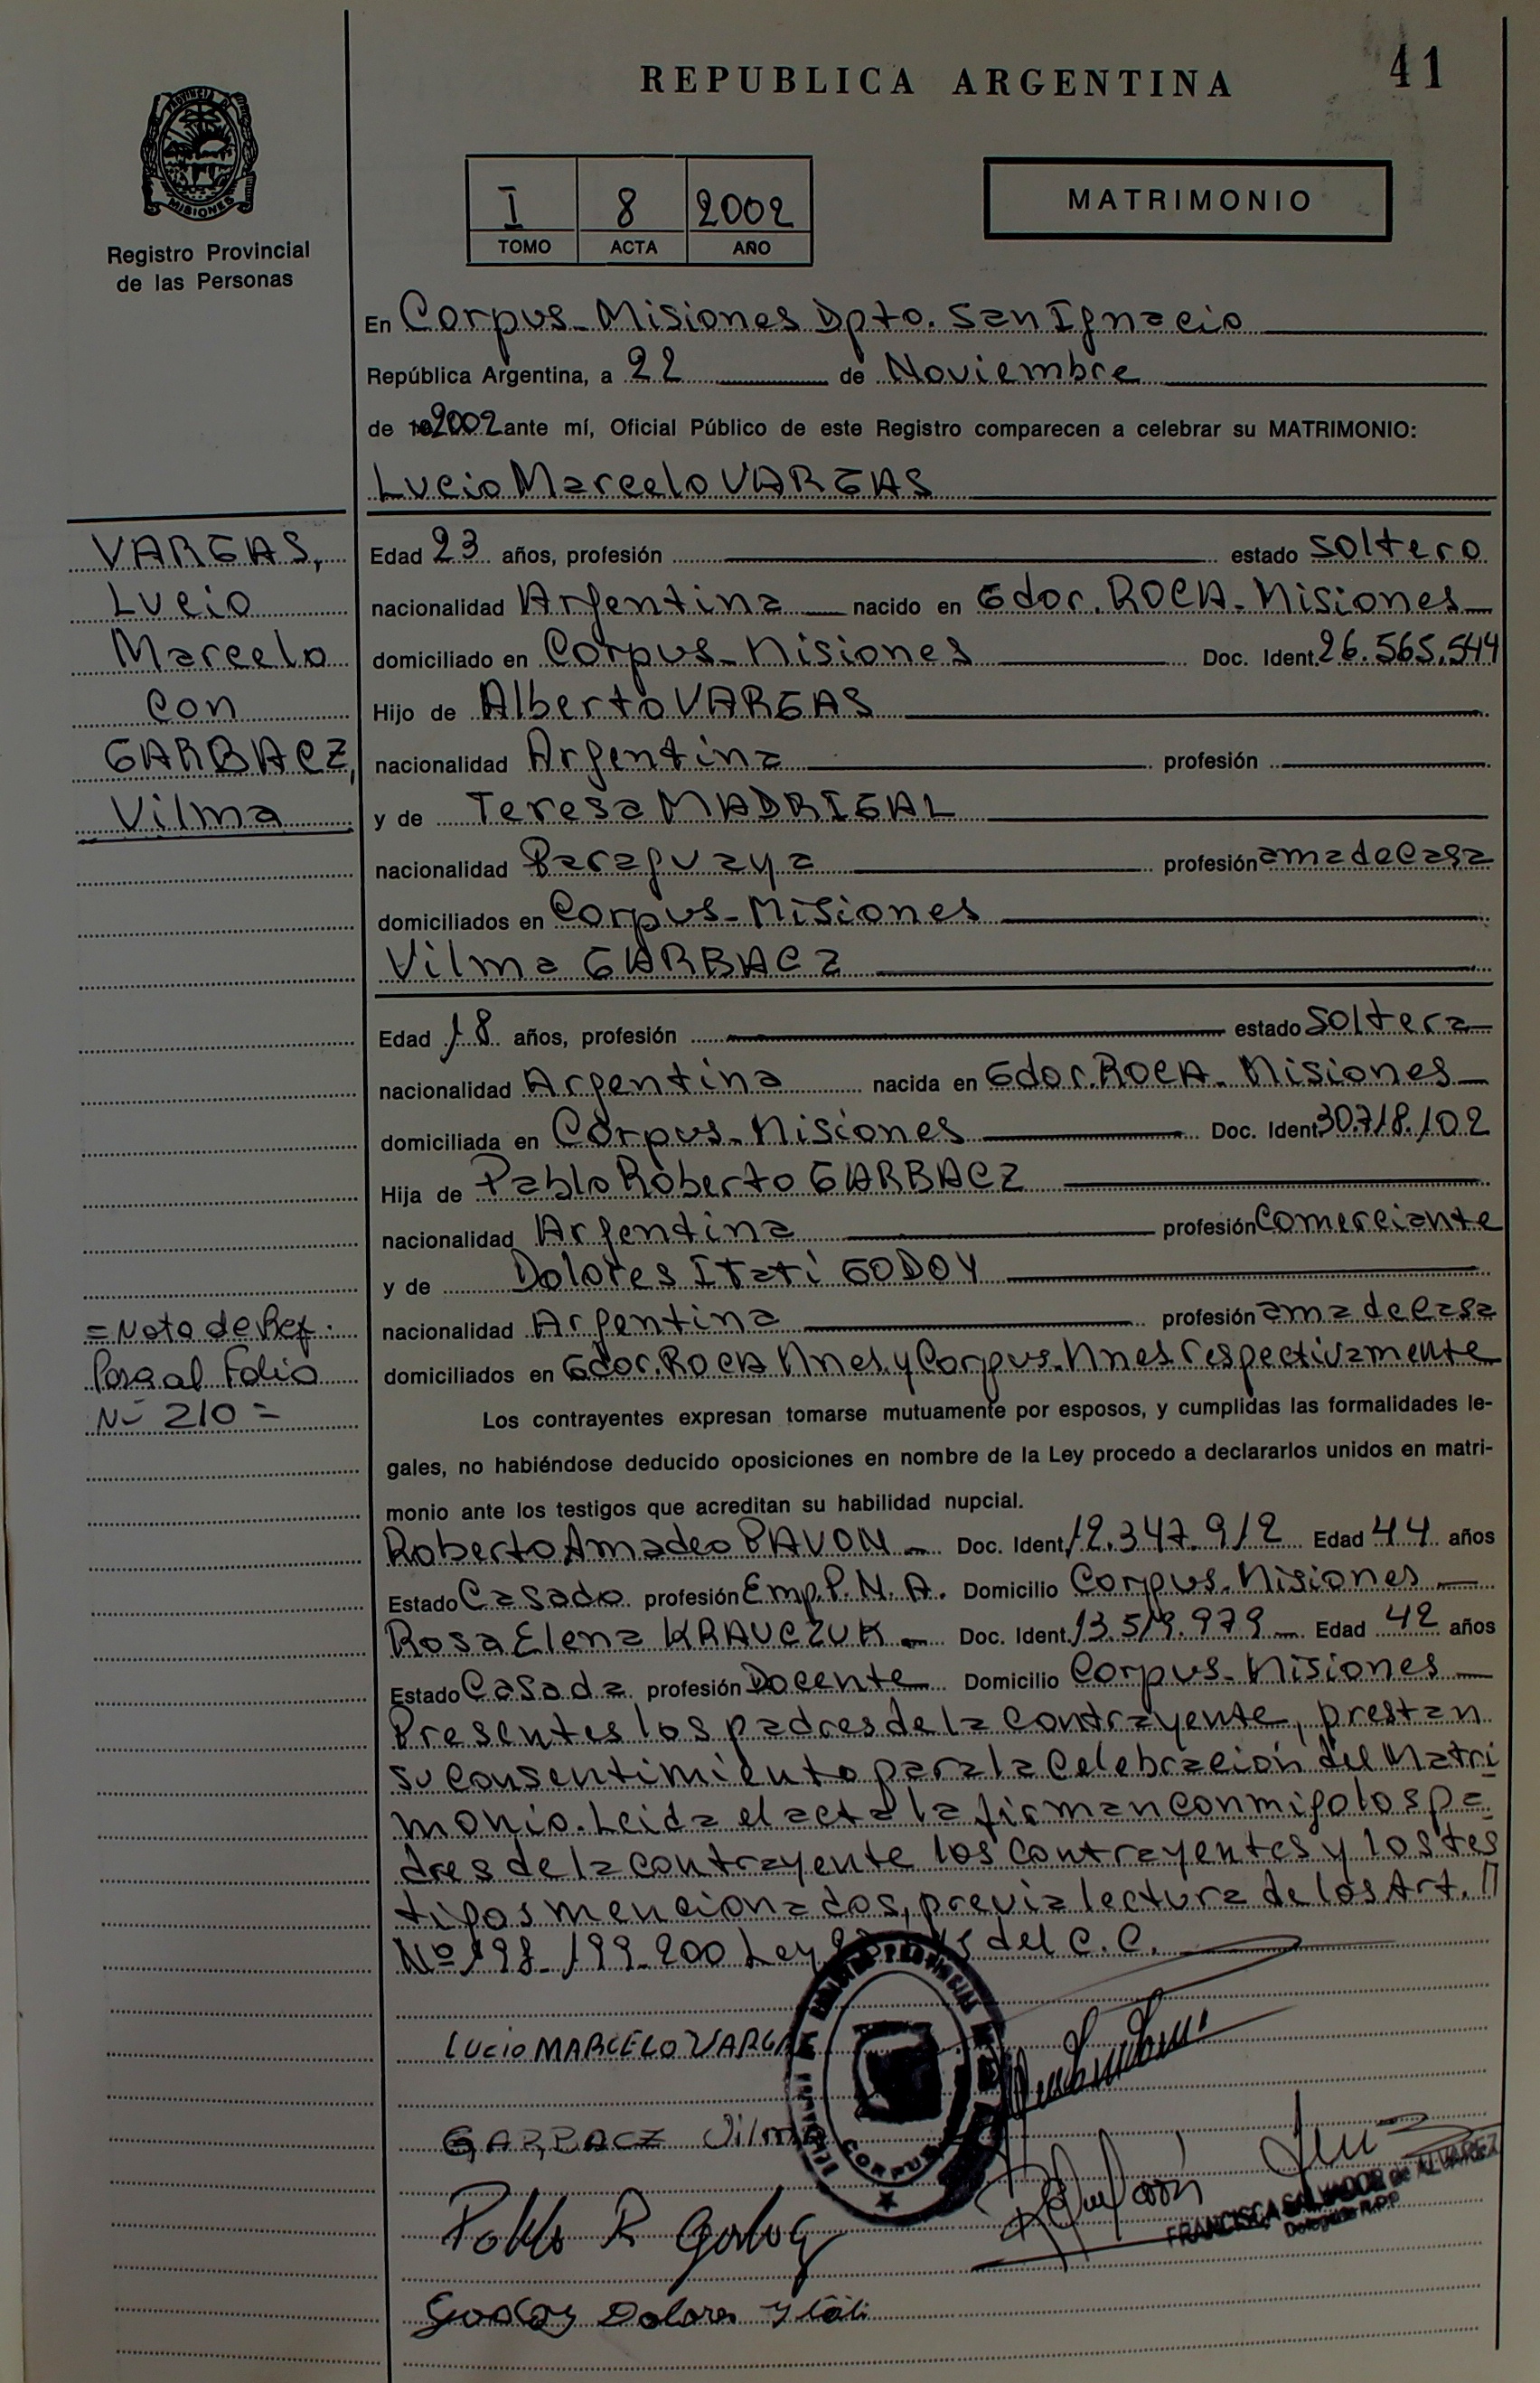 REPUBLICA ARGENTINA
41
PROVINCIA D
MISIONES
Registro Provincial
de las Personas
I 8 2002
TOMO ACTA AÑO
MATRIMONIO
En Corpus - Misiones Dpto. San Ignacio
República Argentina, a 22 de Noviembre
de 2002 ante mí, Oficial Público de este Registro comparecen a celebrar su MATRIMONIO:
Lucio Marcelo VARGAS
VARGAS,
Lucio
Marcelo
con
GARBACZ,
Vilma
Edad 23 años, profesión estado soltero
nacionalidad Argentina nacido en Gdor. ROCA - Misiones
domiciliado en Corpus - Misiones Doc. Ident. 26.565.544
Hijo de Alberto VARGAS
nacionalidad Argentina profesión
y de Teresa MADRIGAL
nacionalidad Paraguaya profesión ama de casa
domiciliados en Corpus - Misiones
Vilma GARBACZ
Edad 18 años, profesión estado soltera
nacionalidad Argentina nacida en Gdor. ROCA - Misiones
domiciliada en Corpus - Misiones Doc. Ident 30.718.102
Hija de Pablo Roberto GARBACZ
nacionalidad Argentina profesión Comerciante
y de Dolores Itatí GODOY
nacionalidad Argentina profesión ama de casa
domiciliados en Gdor. ROCA Mnes y Corpus - Mnes respectivamente
= Nota de Ref.
Pasa al Folio
Nº 210 =
Los contrayentes expresan tomarse mutuamente por esposos, y cumplidas las formalidades le-
gales, no habiéndose deducido oposiciones en nombre de la Ley procedo a declararlos unidos en matri-
monio ante los testigos que acreditan su habilidad nupcial.
Roberto Amadeo PAVON - Doc. Ident. 12.347.912 Edad 44 años
Estado Casado profesión Emp. P.N.A. Domicilio Corpus - Misiones
Rosa Elena KRAUCZUK - Doc. Ident. 13.519.979 - Edad 42 años
Estado Casada profesión Docente Domicilio Corpus - Misiones
Presentes los padres de la contrayente, prestan
su consentimiento para la celebración del Matri
monio. Leida el acta la firman conmigo los pa
dres de la contrayente los contrayentes y los tes
tigos mencionados, previa lectura de los Art.
Nº 198 - 199 - 200 Ley del C.C.
LUCIO MARCELO VARGA
GARBACZ Vilma
CORPUS
Pablo R
FRANCISCA SALVADOR de ALVAREZ
Delegada R.P.P
Godoy Dolores Itati